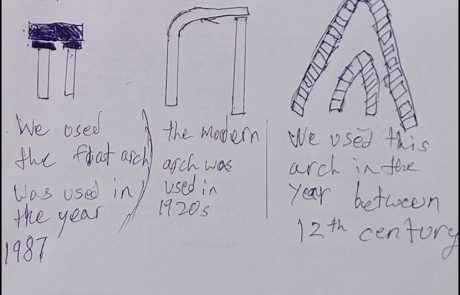 We used
the flat arch
was used in
the year
1987
the modern
arch was
used in
1920s
We used this
arch in the
year between
12th century